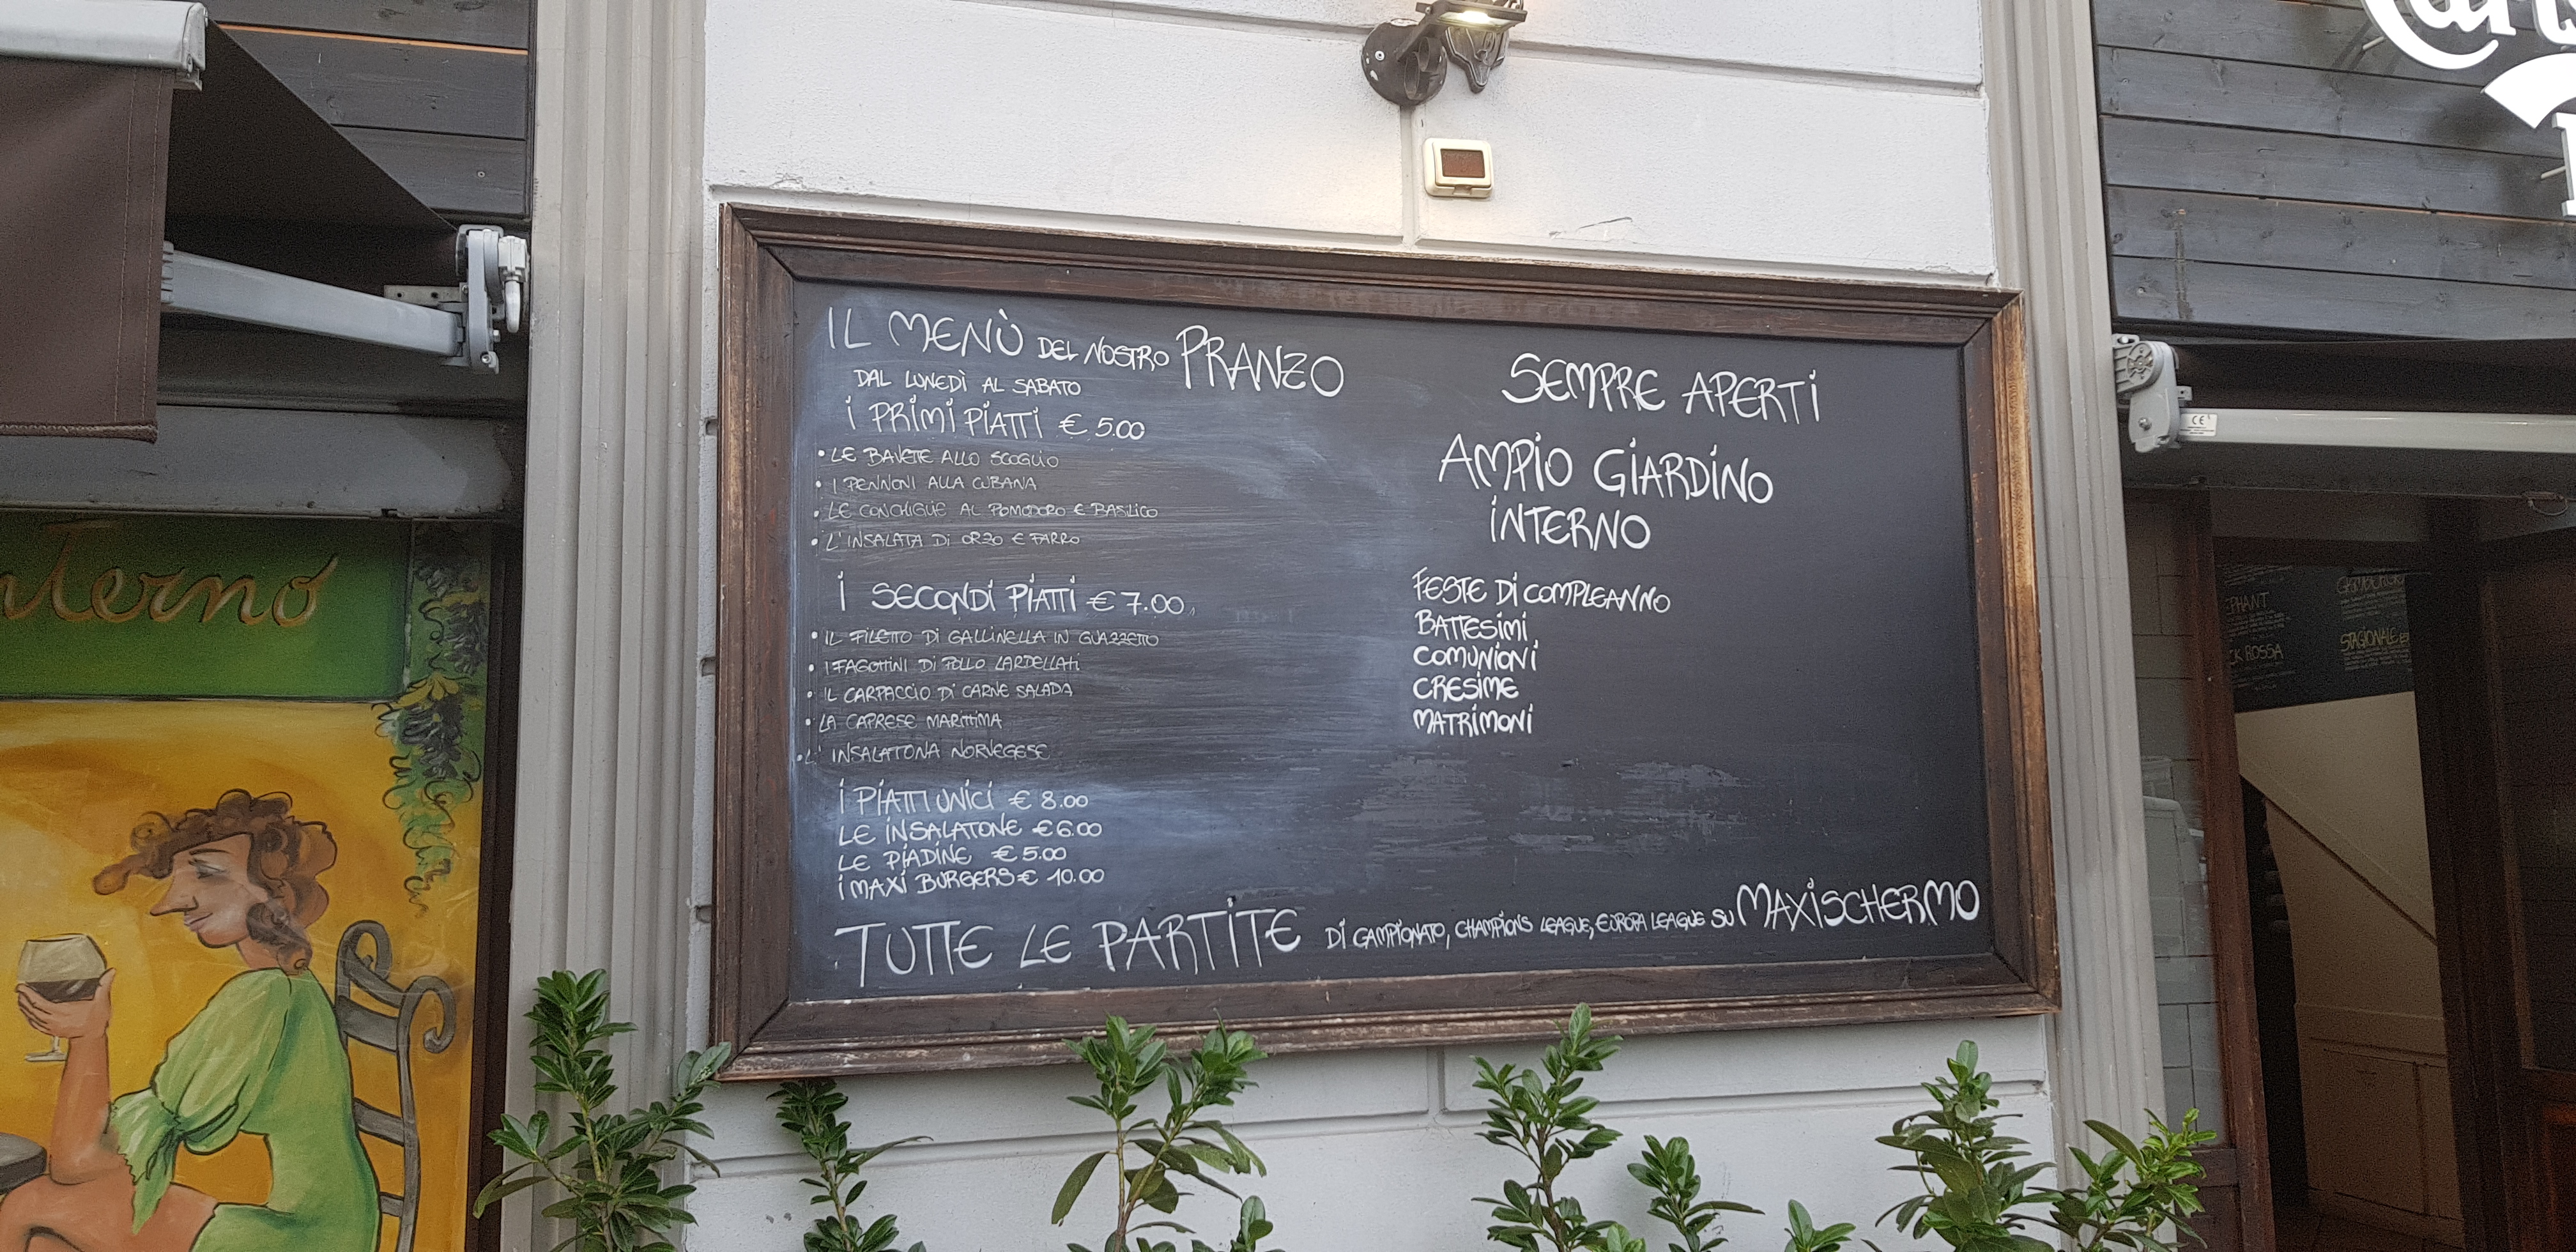 IL MENÙ DEL NOSTRO PRANZO
DAL LUNEDÌ AL SABATO
I PRIMI PIATTI € 5.00
• LE BAVETTE ALLO SCOGLIO
• I PENNONI ALLA CUBANA
• LE CONCHIGLIE AL POMODORO E BASILICO
• L'INSALATA DI ORZO E FARRO
I SECONDI PIATTI € 7.00
• IL FILETTO DI GALLINELLA IN GUAZZETTO
• I FAGOTTINI DI POLLO LARDELLATI
• IL CARPACCIO DI CARNE SALADA
• LA CAPRESE MARITTIMA
• L'INSALATONA NORVEGESE
I PIATTI UNICI € 8.00
LE INSALATONE € 6.00
LE PIADINE € 5.00
I MAXI BURGERS € 10.00
SEMPRE APERTI
AMPIO GIARDINO
INTERNO
FESTE DI COMPLEANNO
BATTESIMI
COMUNIONI
CRESIME
MATRIMONI
TUTTE LE PARTITE DI CAMPIONATO, CHAMPIONS LEAGUE, EUROPA LEAGUE SU MAXISCHERMO
nterno
PHANT
CK ROSSA
STAGIONALE
CE